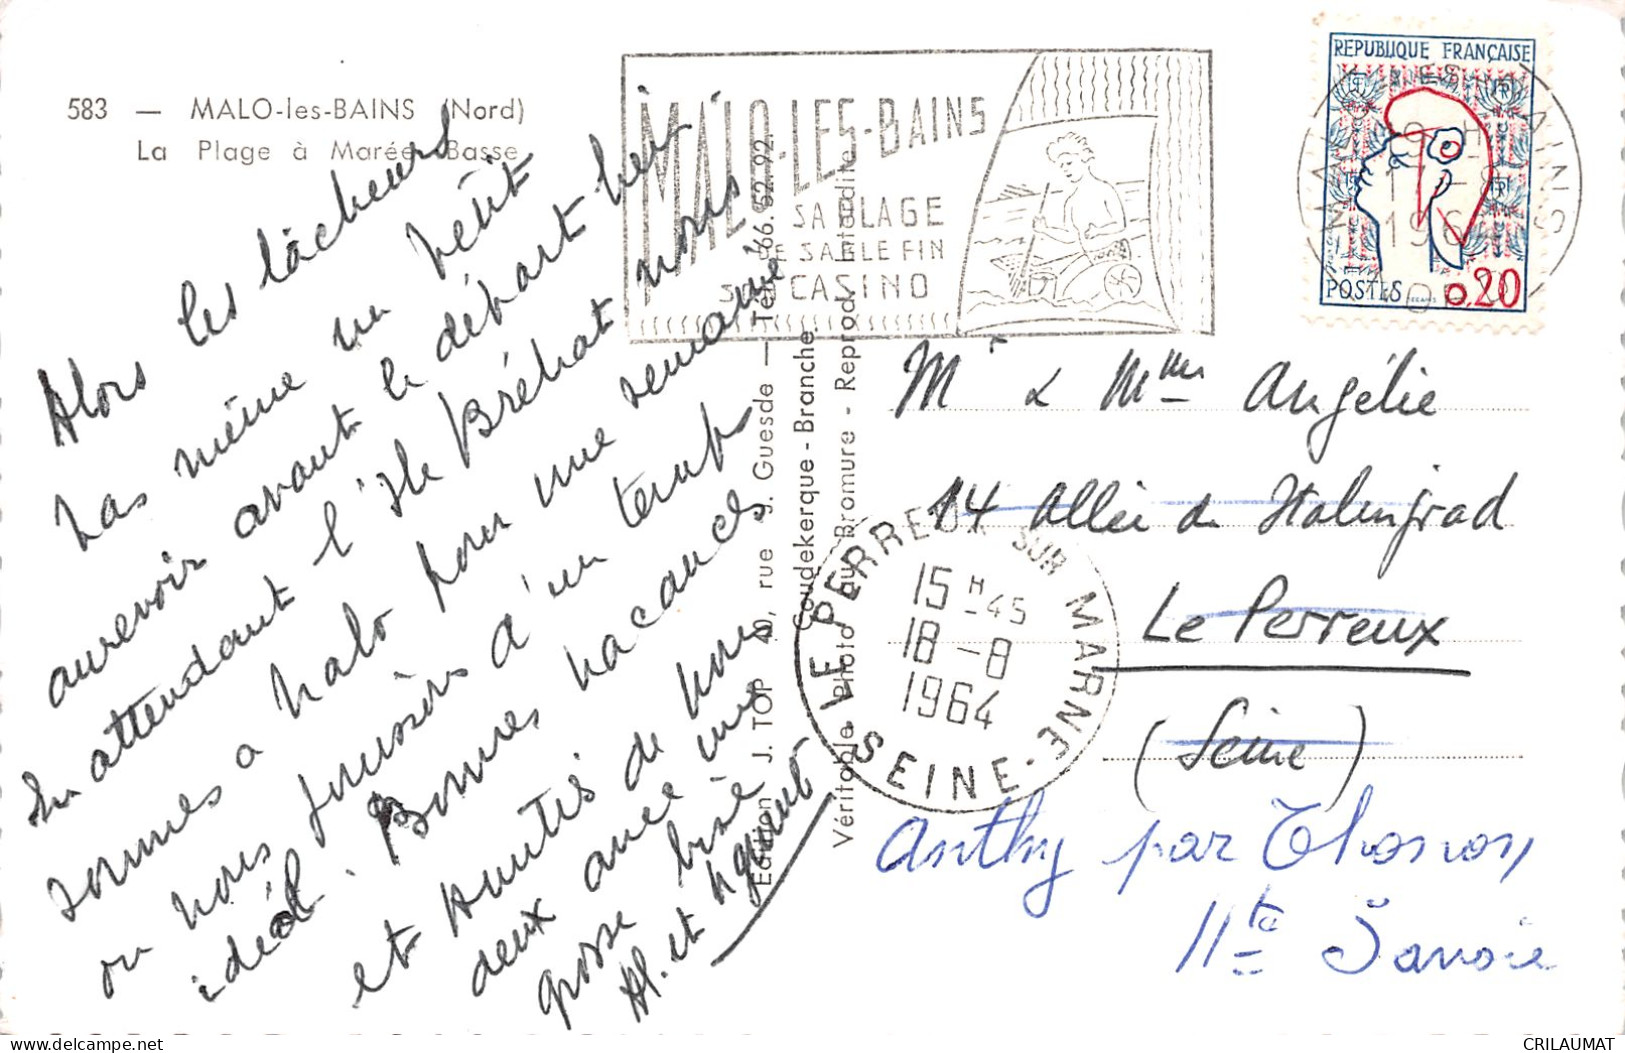 583 — MALO-les-BAINS (Nord)
La Plage à Marée Basse
MALO-LES-BAINS
SA PLAGE
DE SABLE FIN
SON CASINO
REPUBLIQUE FRANÇAISE
POSTES 0,20
MALO LES BAINS
1964
Alors les lâcheurs
pas même un petit
aurevoir avant le départ
En attendant l'île Bréhat nous
sommes à Malo pour une semaine
où nous jouissons d'un temps
idéal. Bonnes vacances
et amitiés de nous
deux avec une
grosse bise
Edition J. TOP rue J. Guesde — Tél. 66.52.92.
Coudekerque-Branche.
Véritable Photo au Bromure - Reprod. Interdite
LE PERREUX SUR MARNE
15 H -45
18 -8
1964
SEINE
Mr & Mme Angélie
14 Allée de Stalingrad
Le Perreux
(Seine)
Anthy par Thonon
Hte Savoie
CRILAUMAT